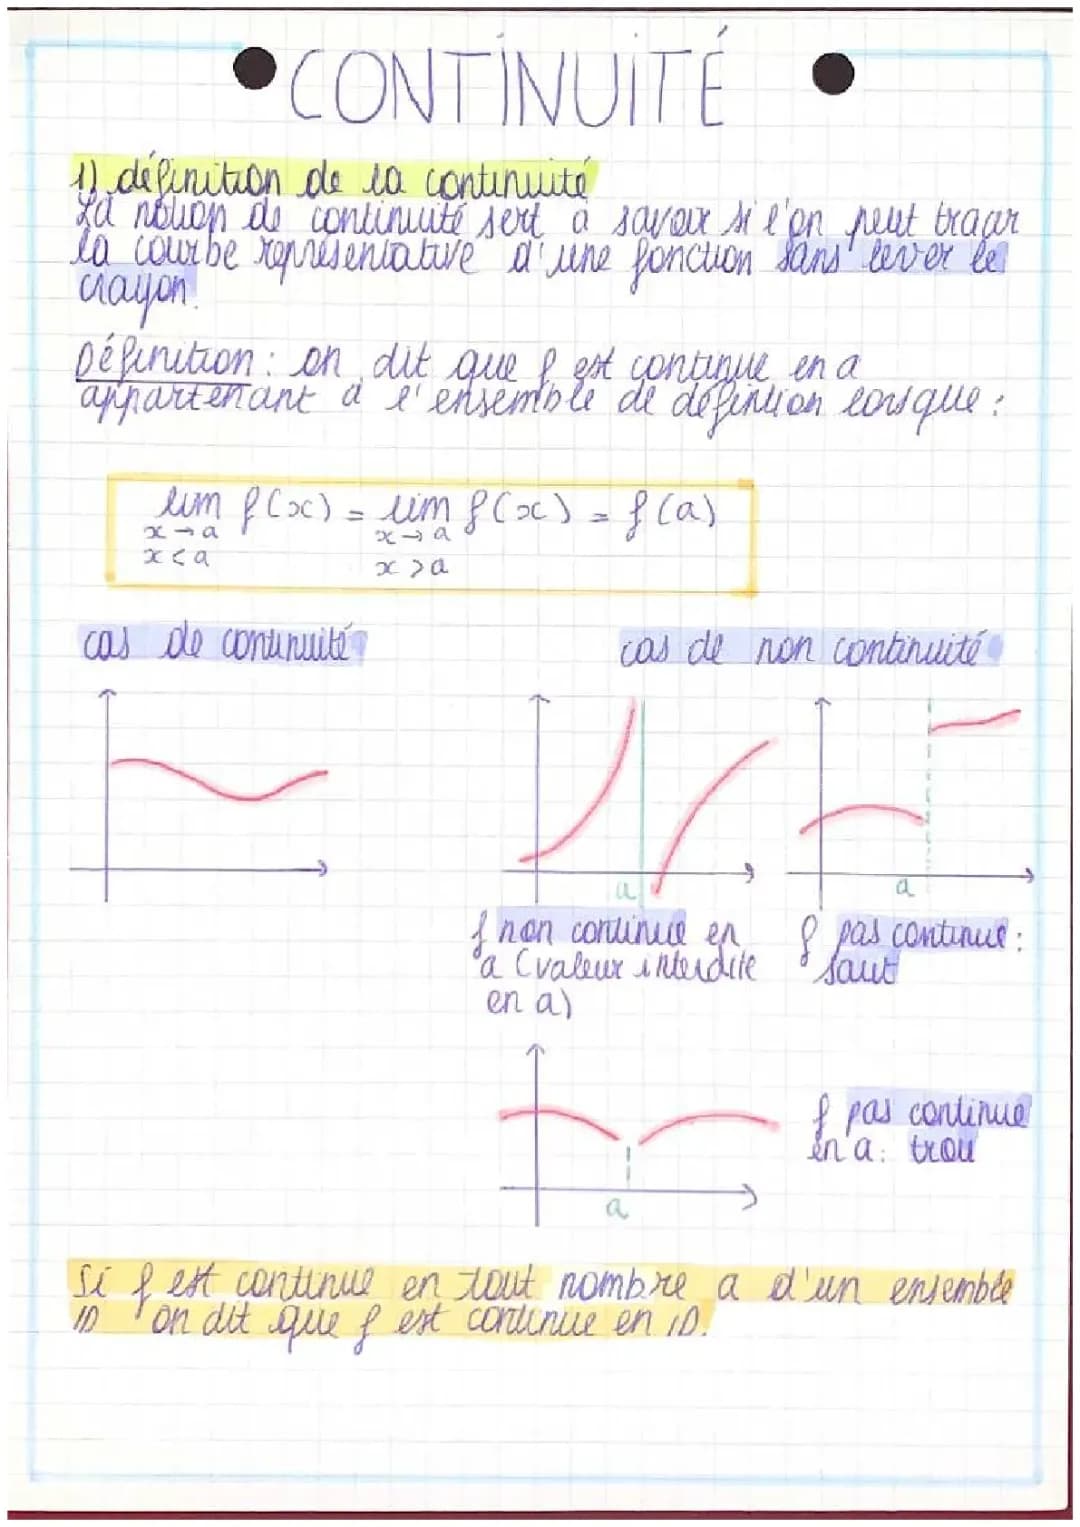 CONTINUITÉ
1) définition de la continuité
La notion de continuité sert à savoir si l'on peut tracer
la courbe représentative d'une fonction sans lever le
crayon.
Définition : on dit que f est continue en a
appartenant à l'ensemble de définition lorsque :
lim f(x) = lim f(x) = f(a)
x→a x→a
x<a x>a
cas de continuité
cas de non continuité
a
a
f non continue en
a (valeur interdite
en a)
f pas continue :
saut
a
f pas continue
en a : trou
Si f est continue en tout nombre a d'un ensemble
ID on dit que f est continue en ID.